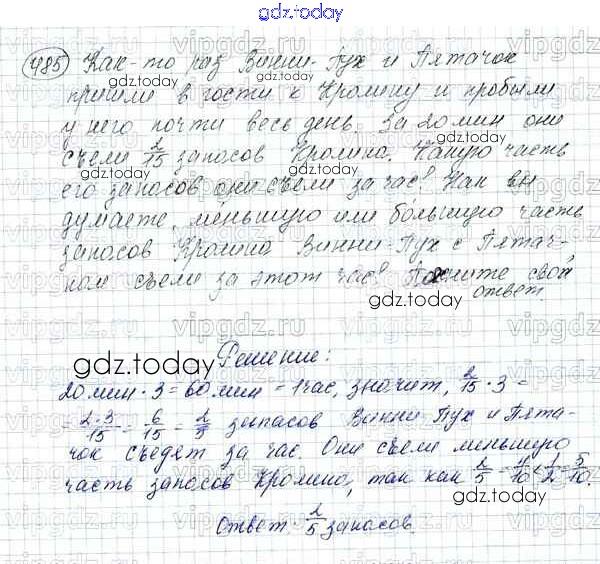 gdz.today
485 Как-то раз Винни-Пух и Пятачок
пришли в гости к Кролику и пробыли
у него почти весь день. За 20 мин они
съели 2/15 запасов Кролика. Какую часть
его запасов они съели за час? Как вы
думаете, меньшую или бо́льшую часть
запасов Кролика Винни-Пух с Пятач-
ком съели за этот час? Поясните свой
ответ
Решение:
20 мин · 3 = 60 мин = 1 час, значит, 2/15 · 3 =
= 2·3/15 = 6/15 = 2/5 запасов Винни Пух и Пята-
чок съедят за час. Они съели меньшую
часть запасов Кролика, так как 2/5 = 4/10 < 1/2 = 5/10.
Ответ: 2/5 запасов